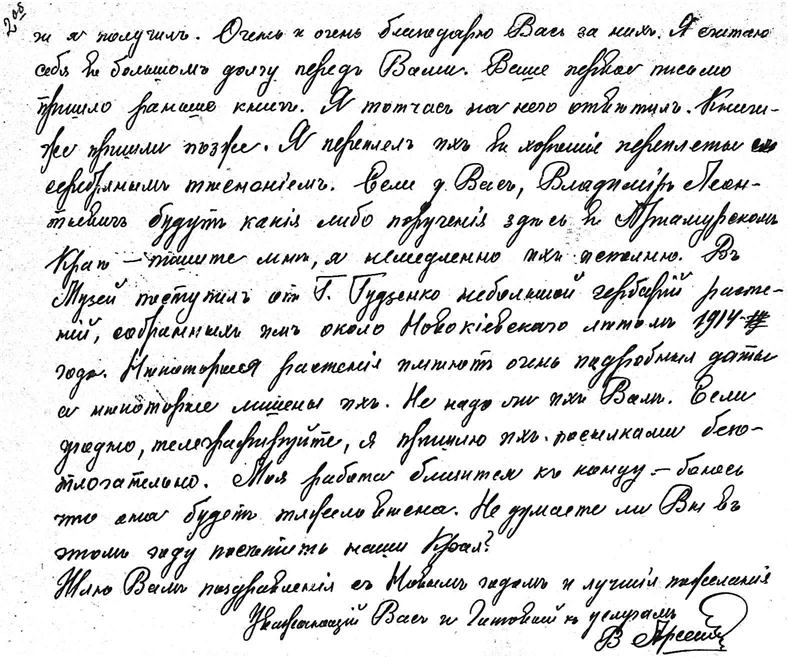 2 об
и я получилъ. Очень и очень благодарю Васъ за нихъ. Я считаю
себя въ большомъ долгу передъ Вами. Ваше первое письмо
пришло раньше книгъ. Я тотчасъ на него отвѣтилъ. Книги-
же пришли позже. Я переплелъ ихъ въ хорошіе переплеты съ
серебрянымъ тисненіемъ. Если у Васъ, Владиміръ Леон-
тьевичъ будутъ какія либо порученія здѣсь въ Приамурскомъ
Краѣ — пишите мнѣ, я немедленно ихъ исполню. Въ
Музей поступилъ отъ Г. Гудзенко небольшой гербарій расте-
ній, собранныхъ имъ около Новокіевскаго лѣтомъ 1914
года. Нѣкоторыя растенія имѣютъ очень подробныя даты
а нѣкоторые лишены ихъ. Не надо ли ихъ Вамъ. Если
угодно, телеграфируйте, я пришлю ихъ посылками безо-
тлагательно. Моя работа близится къ концу — боюсь
что она будетъ тяжеловѣсна. Не думаете ли Вы въ
этомъ году посѣтить нашъ Край?
Шлю Вамъ поздравленія съ Новымъ годомъ и лучшія пожеланія
Уважающій Васъ и готовый къ услугамъ
В Арсеньев